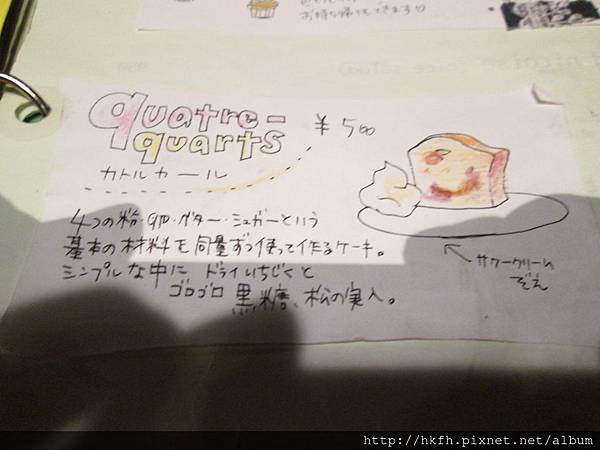 お持ち帰りもできます♡
quatre-
quarts
¥500
カトルカール
4つの粉・卵・バター・シュガーという
基本の材料を同量ずつ使って作るケーキ。
シンプルな中に ドライいちじくと
ゴロゴロ黒糖、松の実入。
サワークリーム
ぞえ
http://hkfh.pixnet.net/album